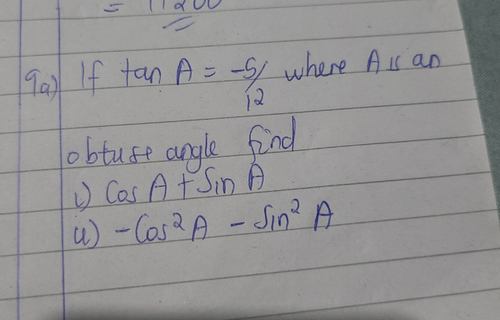 = 11200
9a) If tan A = -5/12 where A is an
obtuse angle find
i) Cos A + Sin A
ii) - Cos² A - Sin² A